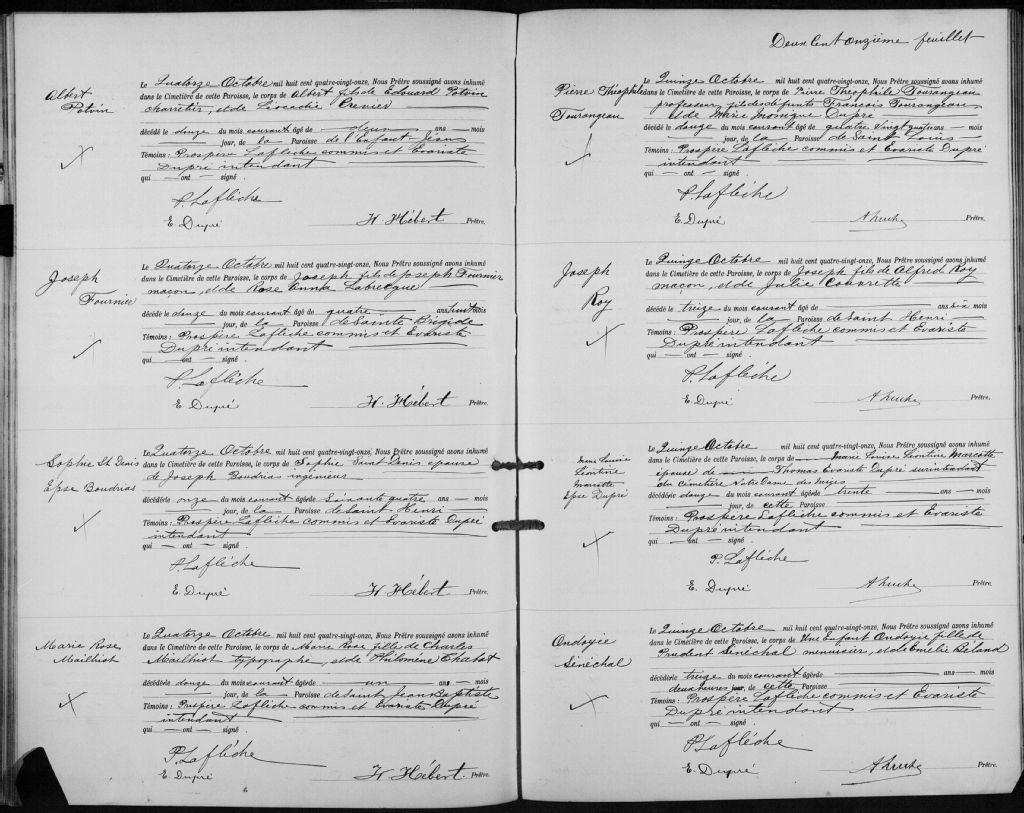 Albert
Potvin
Le Quatorze Octobre mil huit cent quatre-vingt-onze, Nous Prêtre soussigné avons inhumé
dans le Cimetière de cette Paroisse, le corps de Albert fils de Edouard Potvin
charretier, et de Léocadie Crenier
décédé le douze du mois courant âgé de deux ans — mois
— jour, de la Paroisse de l'Enfant Jésus
Témoins : Prospère Laflèche commis et Evariste
Dupré intendant
qui — ont — signé.
P. Laflèche
E. Dupré H. Hébert Prêtre.
Joseph
Fournier
Le Quatorze Octobre mil huit cent quatre-vingt-onze, Nous Prêtre soussigné avons inhumé
dans le Cimetière de cette Paroisse, le corps de Joseph fils de Joseph Fournier
maçon, et de Rose Anna Labrecque
décédé le douze du mois courant âgé de quatre ans huit mois
— jour, de la Paroisse de Sainte Brigide
Témoins : Prospère Laflèche commis et Evariste
Dupré intendant
qui — ont — signé.
P. Laflèche
E. Dupré H. Hébert Prêtre.
Sophie St Denis
Epse Boudrias
Le Quatorze Octobre mil huit cent quatre-vingt-onze, Nous Prêtre soussigné avons inhumé
dans le Cimetière de cette Paroisse, le corps de Sophie Saint Denis épouse
de Joseph Boudrias ingénieur
décédée onze du mois courant âgée de Soixante quatre ans — mois
— jour, de la Paroisse de Saint Henri
Témoins : Prospère Laflèche commis et Evariste Dupré
intendant
qui — ont — signé.
P. Laflèche
E. Dupré H. Hébert Prêtre.
Marie Rose
Mailhiot
Le Quatorze Octobre mil huit cent quatre-vingt-onze, Nous Prêtre soussigné avons inhumé
dans le Cimetière de cette Paroisse, le corps de Marie Rose fille de Charles
Mailhiot typographe, et de Philomène Chabot
décédée le douze du mois courant âgée de un ans — mois
— jour, de la Paroisse de Saint Jean Baptiste
Témoins : Prospère Laflèche commis et Evariste Dupré
intendant
qui — ont — signé.
P. Laflèche
E. Dupré H. Hébert. Prêtre.
Deux Cent onzième feuillet
Pierre Théophile
Tourangeau
Le Quinze Octobre mil huit cent quatre-vingt-onze, Nous Prêtre soussigné avons inhumé
dans le Cimetière de cette Paroisse, le corps de Pierre Théophile Tourangeau
professeur, fils des défunts François Tourangeau
et de Marie Monique Dupré
décédé le douze du mois courant âgé de quatre vingt quatre ans — mois
— jour, de la Paroisse de Saint Louis
Témoins : Prospère Laflèche commis et Evariste Dupré
intendant
qui — ont — signé.
P. Laflèche
E. Dupré Prêtre.
Joseph
Roy
Le Quinze Octobre mil huit cent quatre-vingt-onze, Nous Prêtre soussigné avons inhumé
dans le Cimetière de cette Paroisse, le corps de Joseph fils de Alfred Roy
maçon, et de Julie
décédé le treize du mois courant âgé de — ans six mois
— jour, de la Paroisse de Saint Henri
Témoins : Prospère Laflèche commis et Evariste
Dupré intendant
qui — ont — signé.
P. Laflèche
E. Dupré Prêtre.
Marie Louise
Léontine
Marcotte
Epse Dupré
Le Quinze Octobre mil huit cent quatre-vingt-onze, Nous Prêtre soussigné avons inhumé
dans le Cimetière de cette Paroisse, le corps de — Marie Louise Léontine Marcotte
épouse de — Thomas Evariste Dupré surintendant
du cimetière Notre Dame des Neiges
décédée douze du mois courant âgée de trente ans — mois
— jour, de cette Paroisse
Témoins : Prospère Laflèche commis et Evariste
Dupré intendant
qui — ont — signé.
P. Laflèche
E. Dupré Prêtre.
Ondoyée
Sénéchal
Le Quinze Octobre mil huit cent quatre-vingt-onze, Nous Prêtre soussigné avons inhumé
dans le Cimetière de cette Paroisse, le corps de Une Enfant Ondoyée fille de
Prudent Sénéchal menuisier, et de Emélie Béland
décédée le treize du mois courant âgée de — ans — mois
deux heures jour, de cette Paroisse
Témoins : Prospère Laflèche commis et Evariste
Dupré intendant
qui — ont — signé.
P. Laflèche
E. Dupré Prêtre.